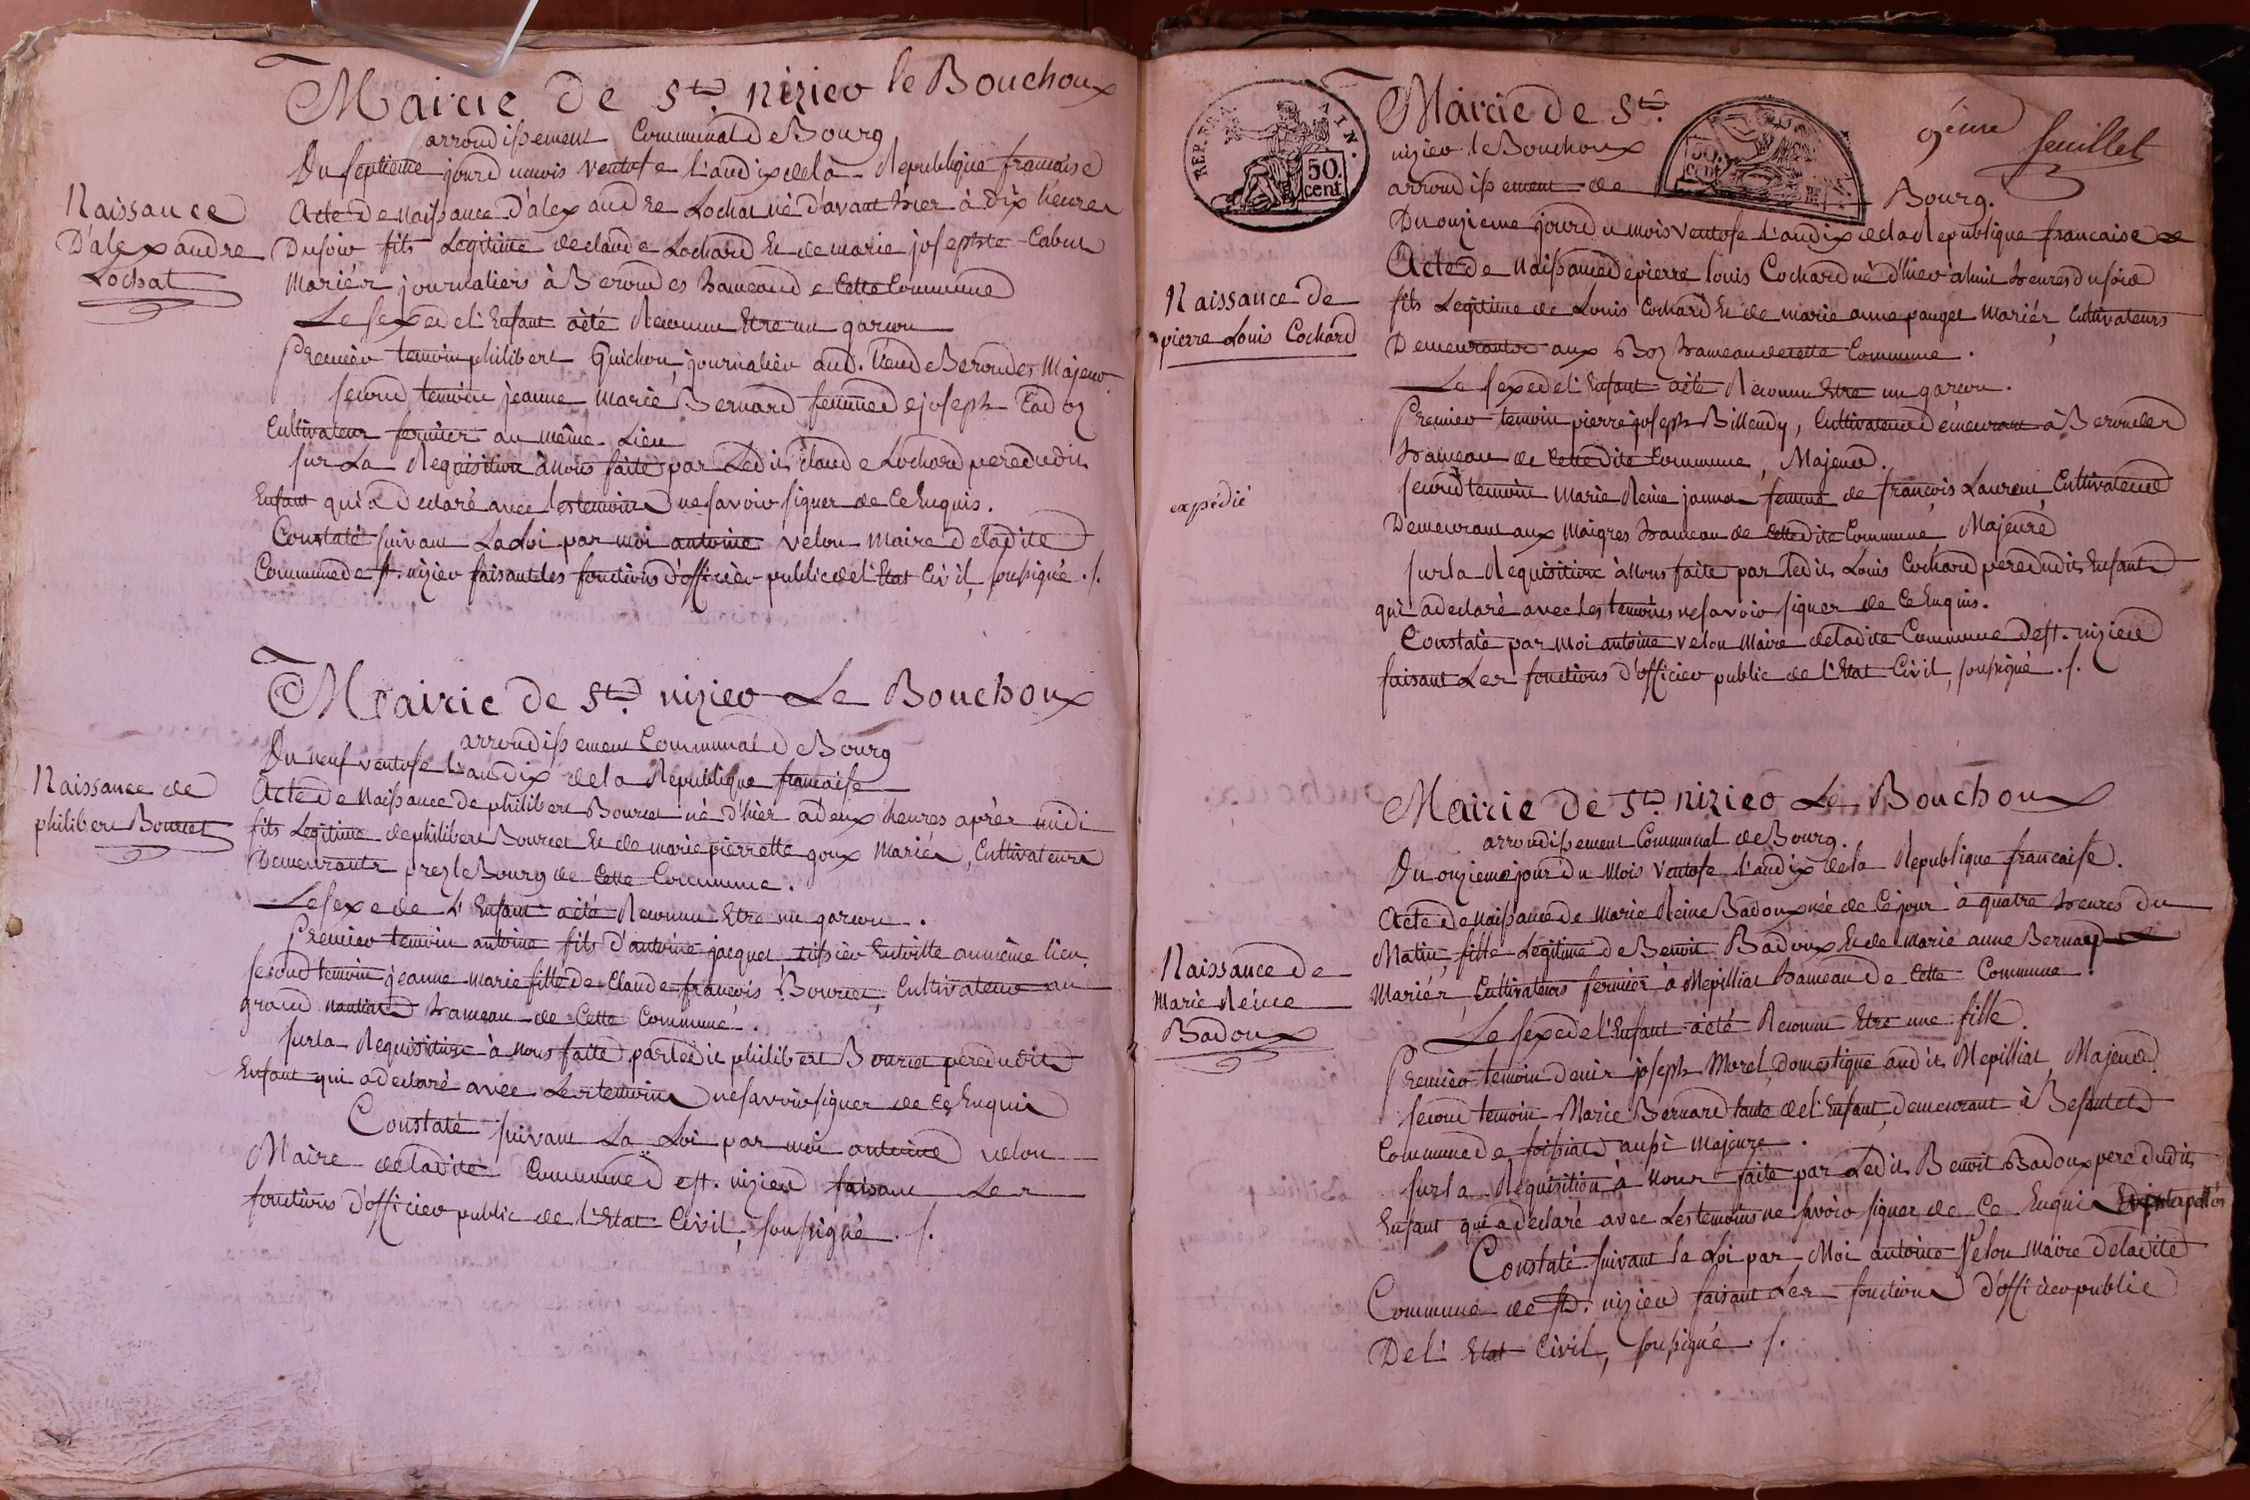 Mairie de St. nizier le Bouchoux
arrondissement Communal de Bourg
Du septieme jour du mois ventose l'an dix de la Republique francaise
Naissance
D'alexandre
Lochat
Acte de naissance d'alexandre Lochat né d'avant hier à dix heures
Du soir fils Legitime de claude Lochard Et de marie josephte Cabut
Mariés journaliers à Beroudes hameau de Cette Commune
Le sexe de l'Enfant a èté Reconnu Etre un garcon
Premier temoin philibert Guichon, journalier aud. lieu de Beroudes Majeur
second temoin jeanne Marie Bernard femme de joseph
Cultivateur fermier au même Lieu
sur La Requisition à nous faite par Ledit Claude Lochard pere dudit
Enfant qui a Declaré avec les temoins ne savoir signer de Ce Enquis.
Constaté suivant La Loi par moi antoine velon Maire de ladite
Commune de st. nizier faisant les fonctions d'officier public de l'Etat Civil, soussigné ./.
Mairie de St. nizier Le Bouchoux
arrondissement Communal de Bourg
Du neuf ventose l'an dix de la Republique francaise
Naissance de
philibert Bourcet
Acte de Naissance de philibert Bourcet né d'hier à deux heures après midi
fils Legitime de philibert Bourcet Et de marie pierrette goux Mariés, Cultivateurs
Demeurants prez le Bourg de Cette Commune.
Le sexe de L'Enfant a èté Reconnu Etre un garcon.
Premier temoin antoine fils d'antoine jacquet tissier Entoille au même lieu.
second temoin jeanne marie fille de Claude francois Bourcet, Cultivateur au
grand hameau de Cette Commune.
sur la Requisition à nous faite par ledit philibert Bourcet pere dudit
Enfant qui a declaré avec Les temoins ne savoir signer de Ce Enquis
Constaté suivant La Loi par moi antoine velon
Maire de ladite Commune de st. nizier faisant Les
fonctions d'officier public de l'Etat Civil, soussigné ./.
REP. FRA.
AIN.
50.
cent
Mairie de St.
9eme feuillet
nizier le Bouchoux
arrondissement de Bourg.
50.
cent
Du onzieme jour du mois ventose l'an dix de la Republique francaise
Naissance de
pierre Louis Cochard
expédié
Acte de Naissance de pierre louis Cochard né d'hier à huit heures du soir
fils Legitime de Louis Cochard Et de marie anne pauget Mariés, Cultivateurs
Demeurants aux Boz hameau de cette Commune.
Le sexe de l'Enfant a èté Reconnu Etre un garcon.
Premier temoin pierre joseph Billoudy, Cultivateur demeurant à Beroudes
hameau de Cette dite Commune, Majeur.
second temoin Marie Reine femme de francois Laurent, Cultivateur
Demeurant aux Maigres hameau de Cette dite Commune, Majeure
sur la Requisition à Nous faite par Ledit Louis Cochard pere dudit Enfant
qui a declaré avec les temoins ne savoir signer de Ce Enquis.
Constaté par Moi antoine velon Maire de ladite Commune de st. nizier
faisant Les fonctions d'officier public de l'Etat Civil, soussigné ./.
Mairie de St. nizier Le Bouchoux
arrondissement Communal de Bourg.
Du onzieme jour du Mois ventose l'an dix de la Republique francaise.
Naissance de
Marie Reine
Badoux
Acte de Naissance de Marie Reine Badoux née de Ce jour à quatre heures du
Matin, fille Legitime de Benoit Badoux Et de Marie anne Bernard
Mariés Cultivateurs fermier à Mepilliat hameau De Cette Commune.
Le sexe de l'Enfant a été Reconnu Etre une fille.
Premier temoin denis joseph Morel, Domestique audit Mepilliat, Majeur.
second temoin Marie Bernard tante de l'Enfant, demeurant à
Commune de foissiat aussi Majeure.
sur la Requisition à Nous faite par Ledit Benoit Badoux pere dudit
Enfant qui a declaré avec Les temoins ne savoir signer de Ce Enquis
Constaté suivant la Loi par Moi antoine Velon Maire de ladite
Commune de st. nizier faisant Les fonctions d'officier public
De l'Etat Civil, soussigné ./.